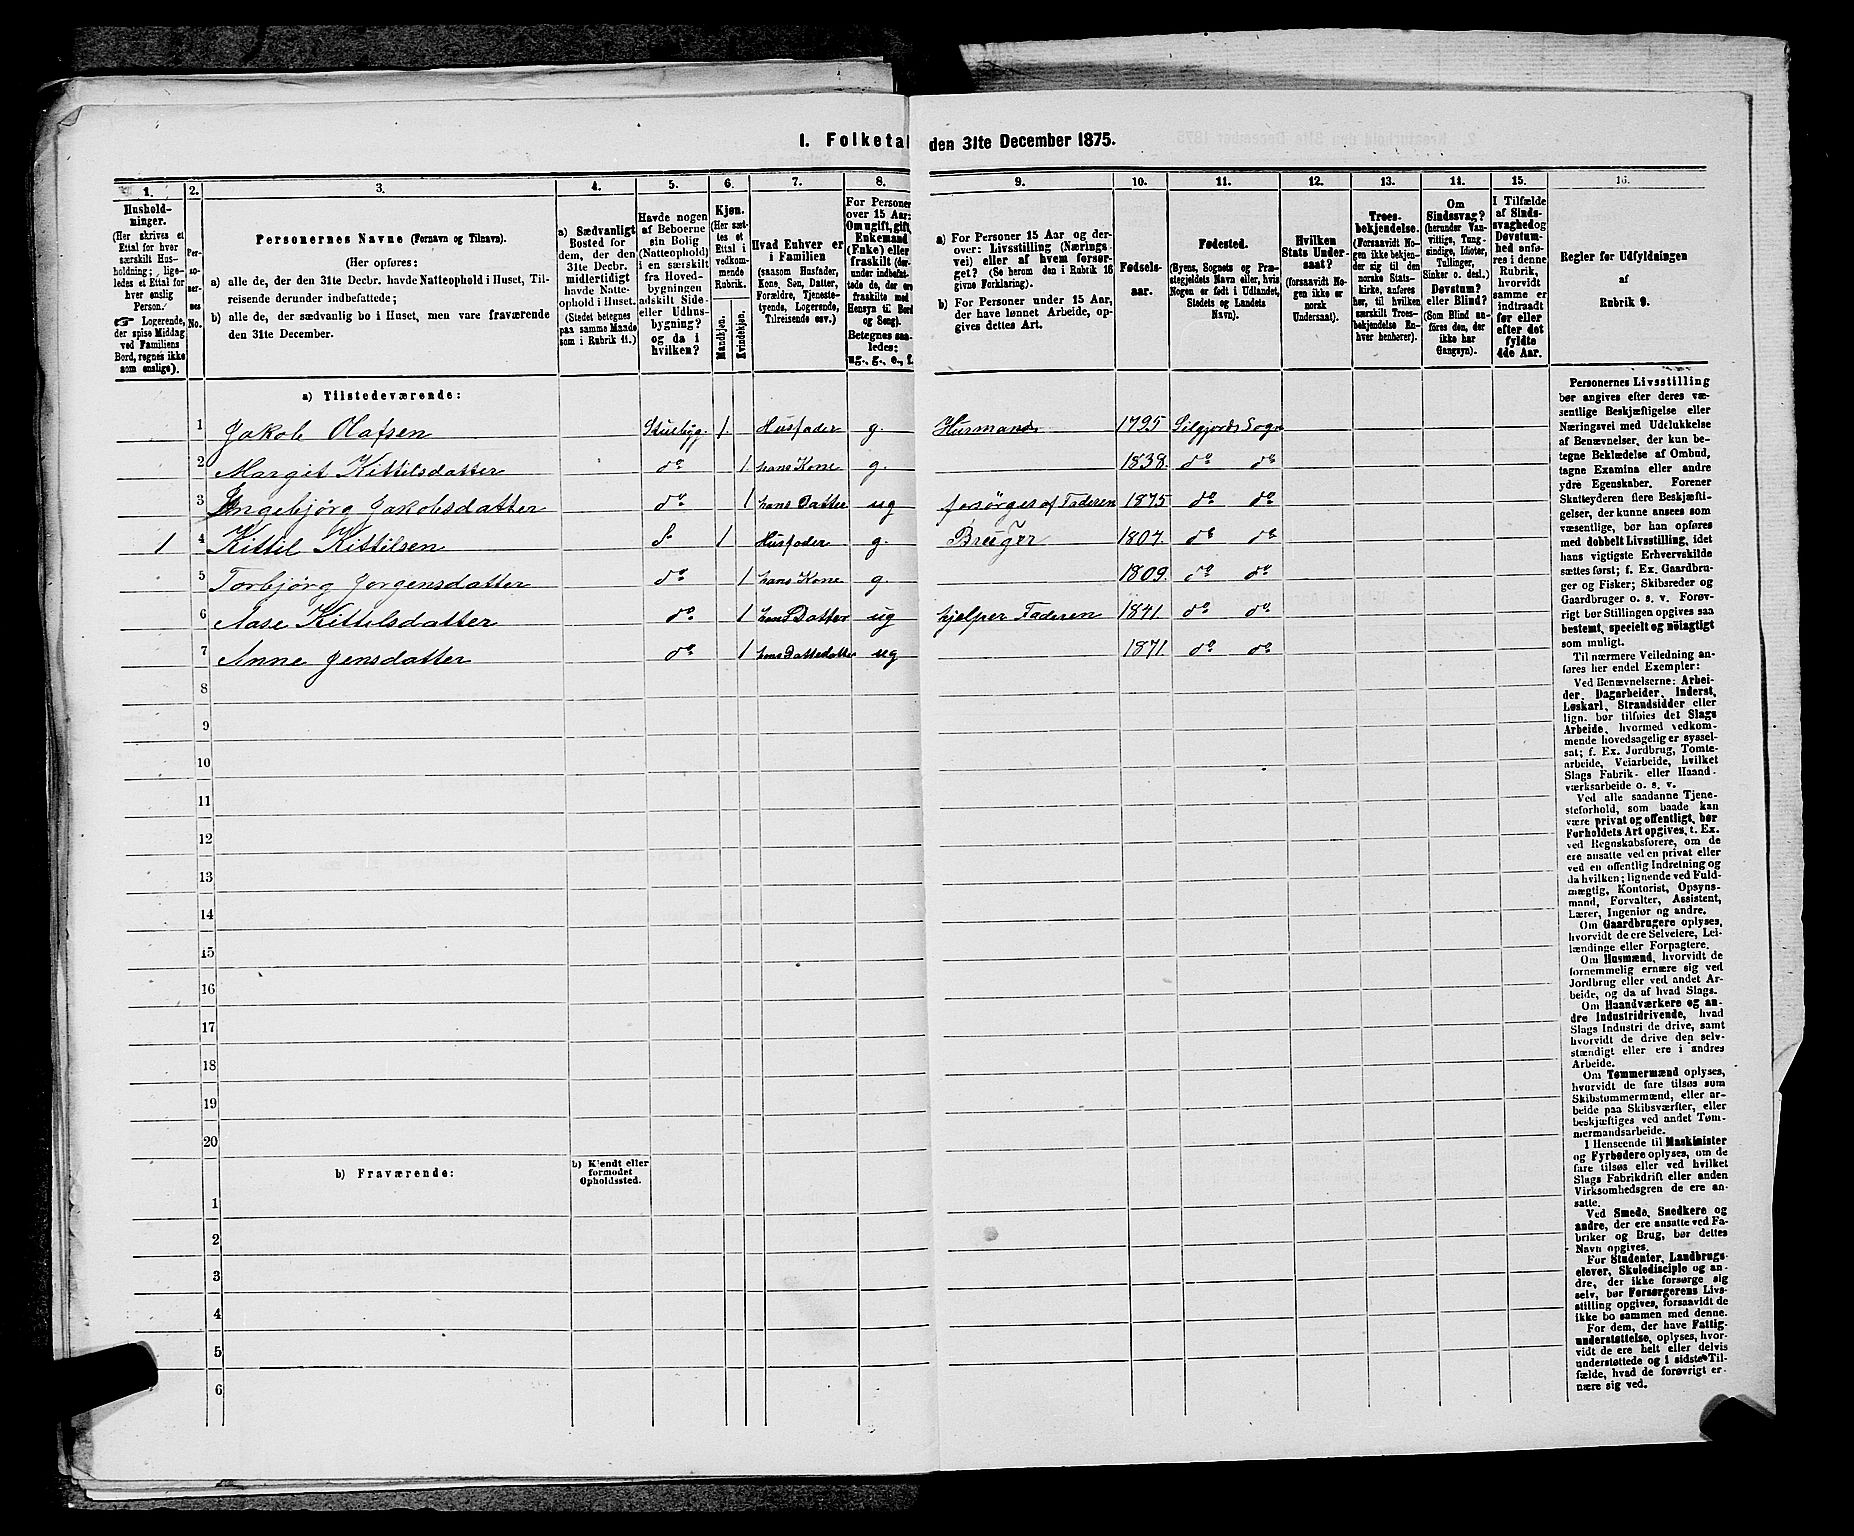 I. Folketal den 31te December 1875.
1. 2. 3. 4. 5. 6. 7. 8. 9. 10. 11. 12. 13. 14. 15. 16.
Husholdninger.
(Her skrives et
Ettal for hver
særskilt Husholdning; ligeledes et Ettal for
hver enslig
Person.
Logerende,
der spise Middag
ved Familiens
Bord, regnes ikke
som enslige).
Personernes No.
Personernes Navne (Fornavn og Tilnavn).
(Her opføres:
a) alle de, der den 31te Decbr. havde Natteophold i Huset, Tilreisende derunder indbefattede;
b) alle de, der sædvanlig bo i Huset, men vare fraværende
den 31te December.
a) Sædvanligt
Bosted for
dem, der den
31te Decbr.
midlertidigt
havde Natteophold i Huset.
(Stedet betegnes
paa samme Maade
som i Rubrik 11.)
Havde nogen
af Beboerne
sin Bolig
(Natteophold)
i en særskilt
fra Hovedbygningen
adskilt Side-
eller Udhusbygning?
og da i
hvilken?
Kjøn.
(Her sættes et
Ettal i
vedkommende
Rubrik.
Mandkjøn.
Kvindekjøn.
Hvad Enhver er
i Familien
(saasom Husfader,
Kone, Søn, Datter,
Forældre, Tjenestetyende, Logerende,
Tilreisende osv.)
For Personer
over 15 Aar:
Om ugift, gift,
Enkemand
(Enke) eller
fraskilt
Betegnes saaledes:
ug., g., e., f.
a) For Personer 15 Aar og derover: Livsstilling (Næringsvei) eller af hvem forsørget? (Se herom den i Rubrik 16
givne Forklaring).
b) For Personer under 15 Aar,
der have lønnet Arbeide, opgives dettes Art.
Fødselsaar.
Fødested.
(Byens, Sognets og Præstegjeldets Navn eller, hvis
Nogen er født i Udlandet,
Stedets og Landets
Navn).
Hvilken
Stats Undersaat?
(forsaavidt Nogen ikke er
norsk
Undersaat).
Troesbekjendelse.
(Forsaavidt Nogen ikke bekjender sig til den
norske Statskirke, anføres
her, til hvilken
særskilt Troesbekjendelse Enhver henhører).
Om
Sindssvag?
(herunder Vanvittige, Tungsindige, Idioter,
Tullinger,
Sinker o. desl.)
Døvstum?
eller Blind?
(Som Blind anføres den, der
ikke har
Gangsyn).
I Tilfælde
af Sindssvaghed og
Døvstumhed anføres i denne
Rubrik,
hvorvidt
samme er
indtraadt
før eller
efter det
fyldte
4de Aar.
Regler for Udfyldningen
af
Rubrik 9.
a) Tilstedeværende:
1 Jakob Olafsen Stuebyg. 1. Husfader g. Husmand 1795 Silgjords Sogn
2 Margit Kittilsdatter do 1 hans Kone g. 1838. do do
3 Ingebjörg Jakobsdatter do 1 hans Datter ug forsörges af Faderen 1875 do do
1 4 Kittil Kittilsen 1 Husfader g. 1807. do do
5 Torbjörg Jorgensdatter do 1 hans Kone g. 1809. do do
6 Aase Kittilsdatter do 1 hans Datter ug hjelper Faderen 1841. do do
7 Anne Jensdatter do 1 hans Datterdatter ug 1871. do do
8
9
10
11
12
13
14
15
16
17
18
19
20
b) Fraværende:
b) Kjendt eller
formodet
Opholdssted.
1
2
3
4
5
6
Personernes Livsstilling
bør angives efter deres væsentlige Beskjæftigelse eller
Næringsvei med Udelukkelse
af Benævnelser, der kun betegne Beklædelse af Ombud,
tagne Examina eller andre
ydre Egenskaber. Forener
Skatteyderen flere Beskjæftigelser, der kunne ansees som
væsentlige, bør han opføres
med dobbelt Livsstilling, idet
hans vigtigste Erhvervskilde
sættes først; f. Ex. Gaardbruger og Fisker; Skibsreder og
Gaardbruger o. s. v. Forøvrigt bør Stillingen opgives saa
bestemt, specielt og nøiagtigt
som muligt.
Til nærmere Veiledning anføres her endel Exempler:
Ved Benævnelserne: Arbeider, Dagarbeider, Inderst,
Løskarl, Strandsidder eller
lign. bør tilføies det Slags
Arbeide, hvormed vedkommende hovedsagelig er sysselsat; f. Ex. Jordbrug, Tomtearbeide, Veiarbeide, hvilket
Slags Fabrik- eller Haandværksarbeide o. s. v.
Ved alle saadanne Tjenesteforhold, som baade kan
være privat og offentligt, bør
Forholdets Art opgives, t. Ex.
ved Regnskabsførere, om de
ere ansatte ved en privat eller
ved en offentlig Indretning og
da hvilken; lignende ved Fuldmægtig, Kontorist, Opsynsmand, Forvalter, Assistent,
Lærer, Ingeniør og andre.
Om Gaardbrugere oplyses,
hvorvidt de ere Selveiere, Leilændinge eller Forpagtere.
Om Husmænd, hvorvidt de
fornemmelig ernære sig ved
Jordbrug eller ved andet Arbeide, og da af hvad Slags.
Om Haandværkere og andre Industridrivende, hvad
Slags Industri de drive, samt
hvorvidt de drive den selvstændigt eller ere i andres
Arbeide.
Om Tømmermænd oplyses,
hvorvidt de fare tilsøs som
Skibstømmermænd, eller arbeide paa Skibsværfter, eller
beskjæftiges ved andet Tømmermandsarbeide.
I Henseende til Maskinister
og Fyrbødere oplyses, om de
fare tilsøs eller ved hvilket
Slags Fabrikdrift eller anden
Virksomhedsgren de ere ansatte.
Ved Smede, Snedkere og
andre, der ere ansatte ved Fabriker og Brug, bør dettes
Navn opgives.
For Studenter, Landbrugselever, Skoledisciple og andre, der ikke forsørge sig
selv, bør Forsørgerens Livsstilling opgives, forsaavidt de
ikke bo sammen med denne.
For dem, der have Fattigunderstøttelse, oplyses, hvorvidt de ere helt eller delvis
understøttede og i sidste Tilfælde, hvad de forøvrigt ernære sig ved.